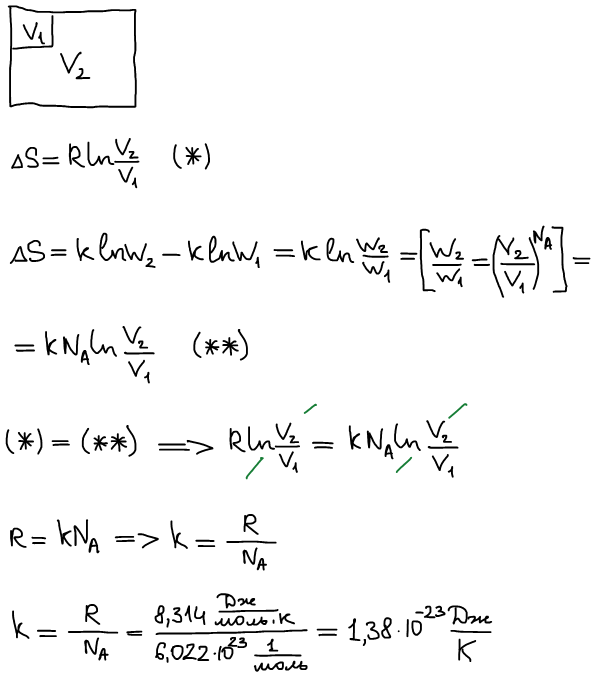 V₁
V₂
ΔS = R ln V₂/V₁ (*)
ΔS = k lnW₂ − k lnW₁ = k ln W₂/W₁ = [W₂/W₁ = (V₂/V₁)^N_A] =
= k N_A ln V₂/V₁ (**)
(*) = (**) => R ln V₂/V₁ = k N_A ln V₂/V₁
R = kN_A => k = R/N_A
k = R/N_A = (8,314 Дж/(моль·К))/(6,022·10²³ 1/моль) = 1,38·10⁻²³ Дж/К